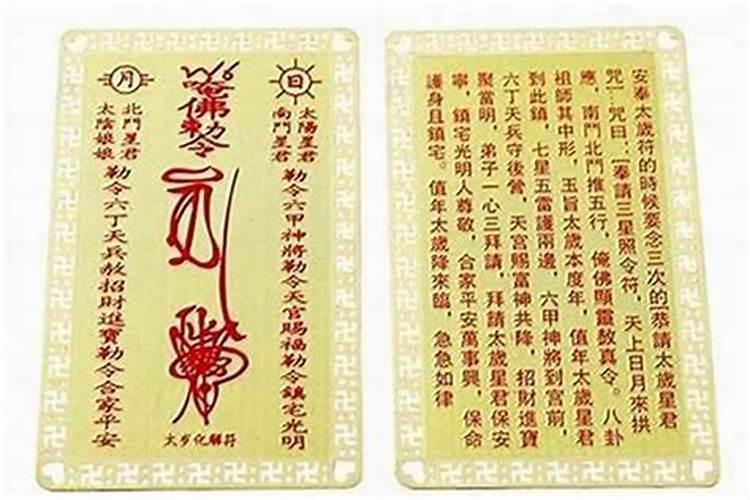 日
太陽星君
南鬥星君
勒令六甲神將勒令天官賜福勒令鎮宅光明
唵佛敕令
月
北鬥星君
太陰娘娘
勒令六丁天兵赦招財進寶勒令合家平安
太岁化解符
安奉太歲符的時候要念三次的[恭請太歲星君
咒]…咒曰:[奉請三星照令符,天上日月來拱
應,南鬥北鬥推五行,俺佛顯靈敕真令。八卦
祖師其中形,玉旨太歲本度年,值年太歲星君
到此鎮,七星五雷護兩邊,六甲神將到宮前,
六丁天兵守後營,天官賜富神共降,招財進寶
聚當明,弟子一心三拜請,拜請太歲星君保安
寧,鎮宅光明人尊敬,合家平安萬事興,保命
護身且鎮宅。值年太歲降來臨,急急如律